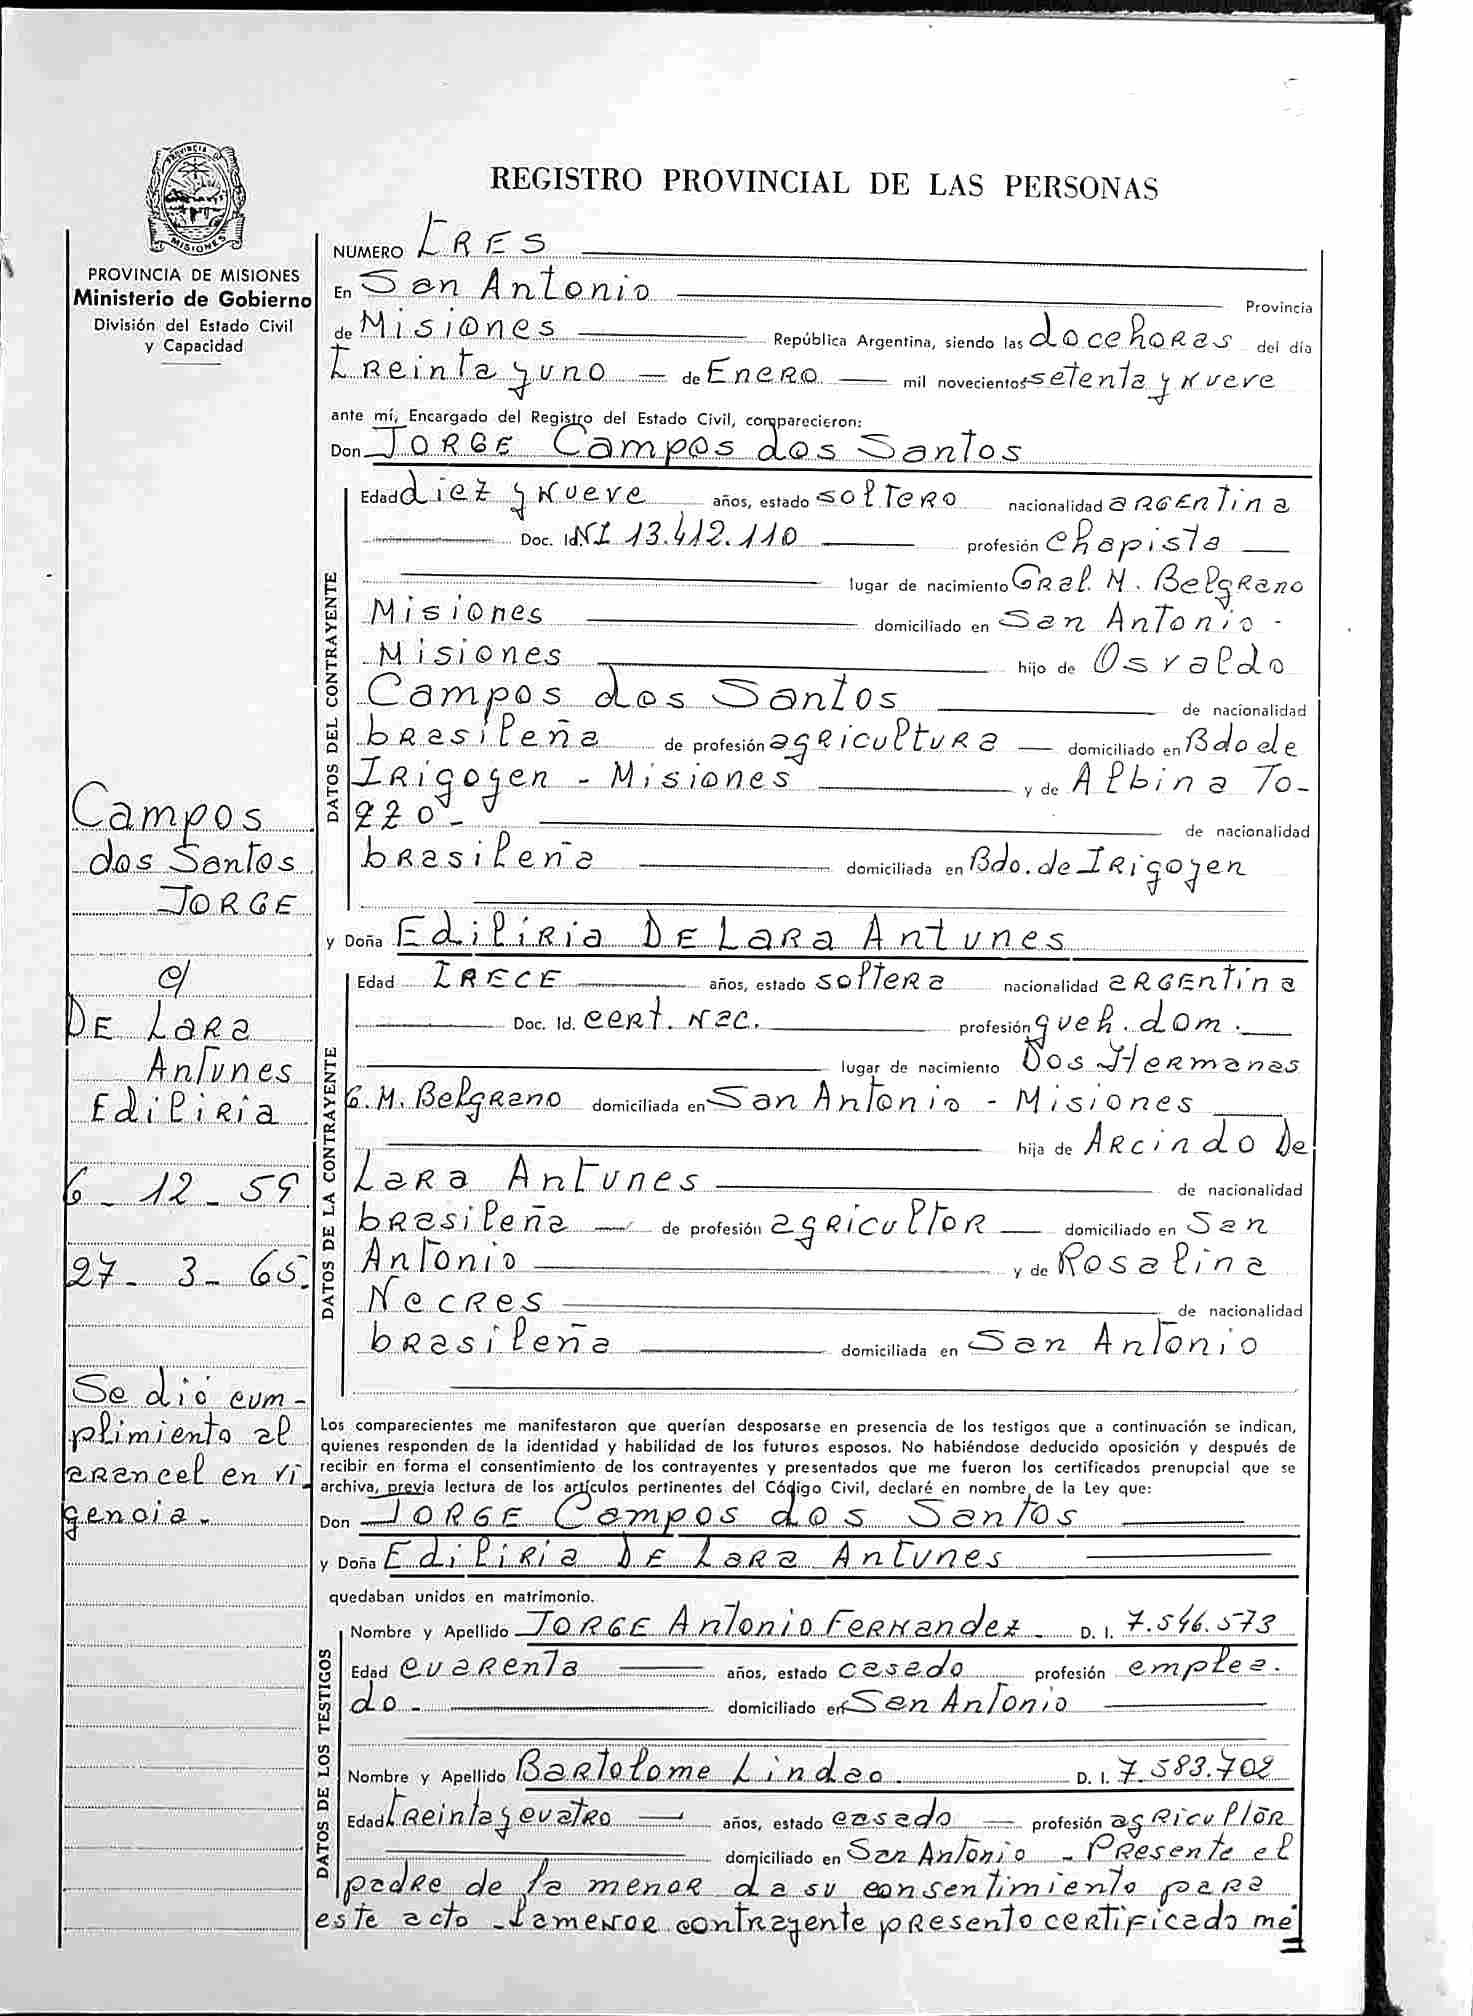 REGISTRO PROVINCIAL DE LAS PERSONAS
PROVINCIA DE
MISIONES
PROVINCIA DE MISIONES
Ministerio de Gobierno
División del Estado Civil
y Capacidad
Campos
dos Santos
JORGE
c/
DE LARA
Antunes
Ediliria
6 - 12 - 59
27 - 3 - 65.
Se dió cum-
plimiento al
arancel en vi-
gencia.
NUMERO TRES
En San Antonio Provincia
de Misiones República Argentina, siendo las doce horas del día
treinta y uno de Enero mil novecientos setenta y nueve
ante mí, Encargado del Registro del Estado Civil, comparecieron:
Don JORGE Campos dos Santos
DATOS DEL CONTRAYENTE
Edad diez y nueve años, estado soltero nacionalidad argentina
Doc. Id. NI 13.412.110 profesión chapista
lugar de nacimiento Gral. M. Belgrano
Misiones domiciliado en San Antonio -
Misiones hijo de Osvaldo
Campos dos Santos de nacionalidad
brasileña de profesión agricultura domiciliado en Bdo de
Irigoyen - Misiones y de Albina To-
zzo - de nacionalidad
brasileña domiciliada en Bdo. de Irigoyen
y Doña Ediliria DE LARA Antunes
DATOS DE LA CONTRAYENTE
Edad TRECE años, estado soltera nacionalidad argentina
Doc. Id. cert. Nac. profesión queh. dom.
lugar de nacimiento Dos Hermanas
G. M. Belgrano domiciliada en San Antonio - Misiones
hija de Arcindo De
Lara Antunes de nacionalidad
brasileña de profesión agricultor domiciliado en San
Antonio y de Rosalina
Necres de nacionalidad
brasileña domiciliada en San Antonio
Los comparecientes me manifestaron que querían desposarse en presencia de los testigos que a continuación se indican,
quienes responden de la identidad y habilidad de los futuros esposos. No habiéndose deducido oposición y después de
recibir en forma el consentimiento de los contrayentes y presentados que me fueron los certificados prenupcial que se
archiva, previa lectura de los artículos pertinentes del Código Civil, declaré en nombre de la Ley que:
Don JORGE Campos dos Santos
y Doña Ediliria DE LARA Antunes
quedaban unidos en matrimonio.
DATOS DE LOS TESTIGOS
Nombre y Apellido JORGE Antonio Fernandez - D. I. 7.546.573
Edad cuarenta años, estado casado profesión emplea-
do - domiciliado en San Antonio
Nombre y Apellido Bartolome Lindao. D. I. 7.583.702
Edad treinta y cuatro años, estado casado profesión agricultor
domiciliado en San Antonio - Presente el
padre de la menor da su consentimiento para
este acto - la menor contrayente presento certificado me